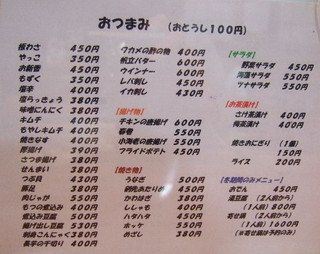 おつまみ (おとうし100円)
板わさ 450円
やっこ 350円
お新香 450円
もずく 350円
塩辛 400円
塩らっきょう 380円
味噌にんにく 380円
キムチ 400円
もやしキムチ 500円
焼きなす 400円
厚揚げ 390円
さつま揚げ 380円
ぜんまい 380円
つぶ貝 430円
豚足 380円
肉じゃが 550円
もつ煮込み 400円
煮込み豆腐 500円
揚げ出し豆腐 500円
刺身こんにゃく 380円
長芋の千切り 400円
ワカメの酢の物 400円
帆立バター 600円
ウインナー 600円
レバ刺し 450円
イカ刺し 430円
[揚げ物]
チキンの唐揚げ 600円
春巻 550円
小海老の唐揚げ 550円
フライドポテト 450円
[焼き物]
うなぎ 500円
かわはぎ 380円
ししゃも 400円
ハタハタ 450円
ホッケ 550円
めざし 380円
[サラダ]
野菜サラダ 450円
海藻サラダ 550円
ツナサラダ 550円
[お茶漬け]
さけ茶漬け 400円
梅茶漬け 400円
焼きおにぎり (1個) 150円
ライス 200円
[冬期間のみメニュー]
おでん 450円
湯豆腐 (2人前から)
(1人前) 800円
寄せ鍋 (2人前から)
(1人前) 1600円
(※寄せ鍋は予約のみ)